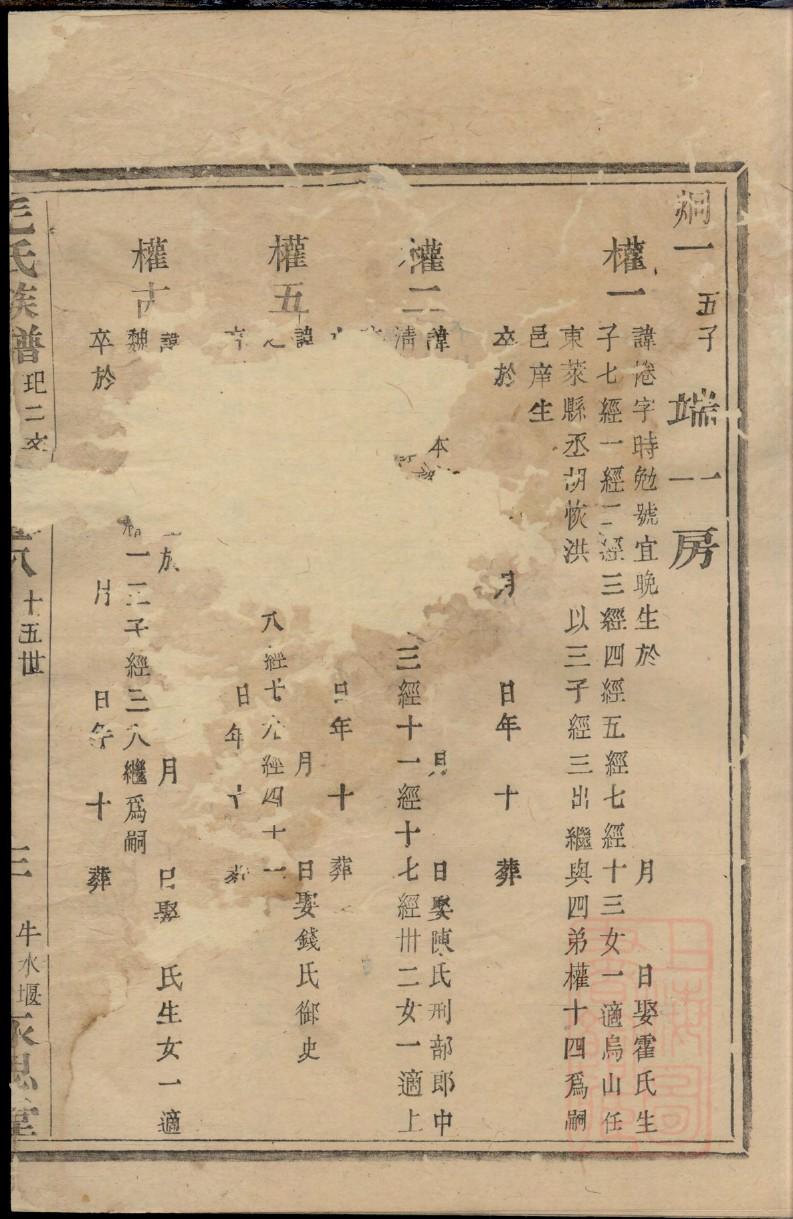 烱一 五子 端一房
權一
諱惓字時勉號宜晚生於 月 日娶霍氏生
子七經一經二經三經四經五經七經十三女一適烏山任
東萊縣丞胡恢洪 以三子經三出繼與四弟權十四爲嗣
邑庠生
卒於 月 日年 十 葬
權二
諱 本 月 日娶陳氏刑部郎中
清 三經十一經十七經卅二女一適上
日年 十 葬
權五
諱 月 日娶錢氏御史
八經十六經四十一
日年 十 葬
權
諱 於 月 日娶 氏生女一適
魏 一二子經三八繼爲嗣
卒於 月 日年 十 葬
毛氏族譜 玘二 六 十五世 三 牛水堰 永思堂
上海圖書館藏